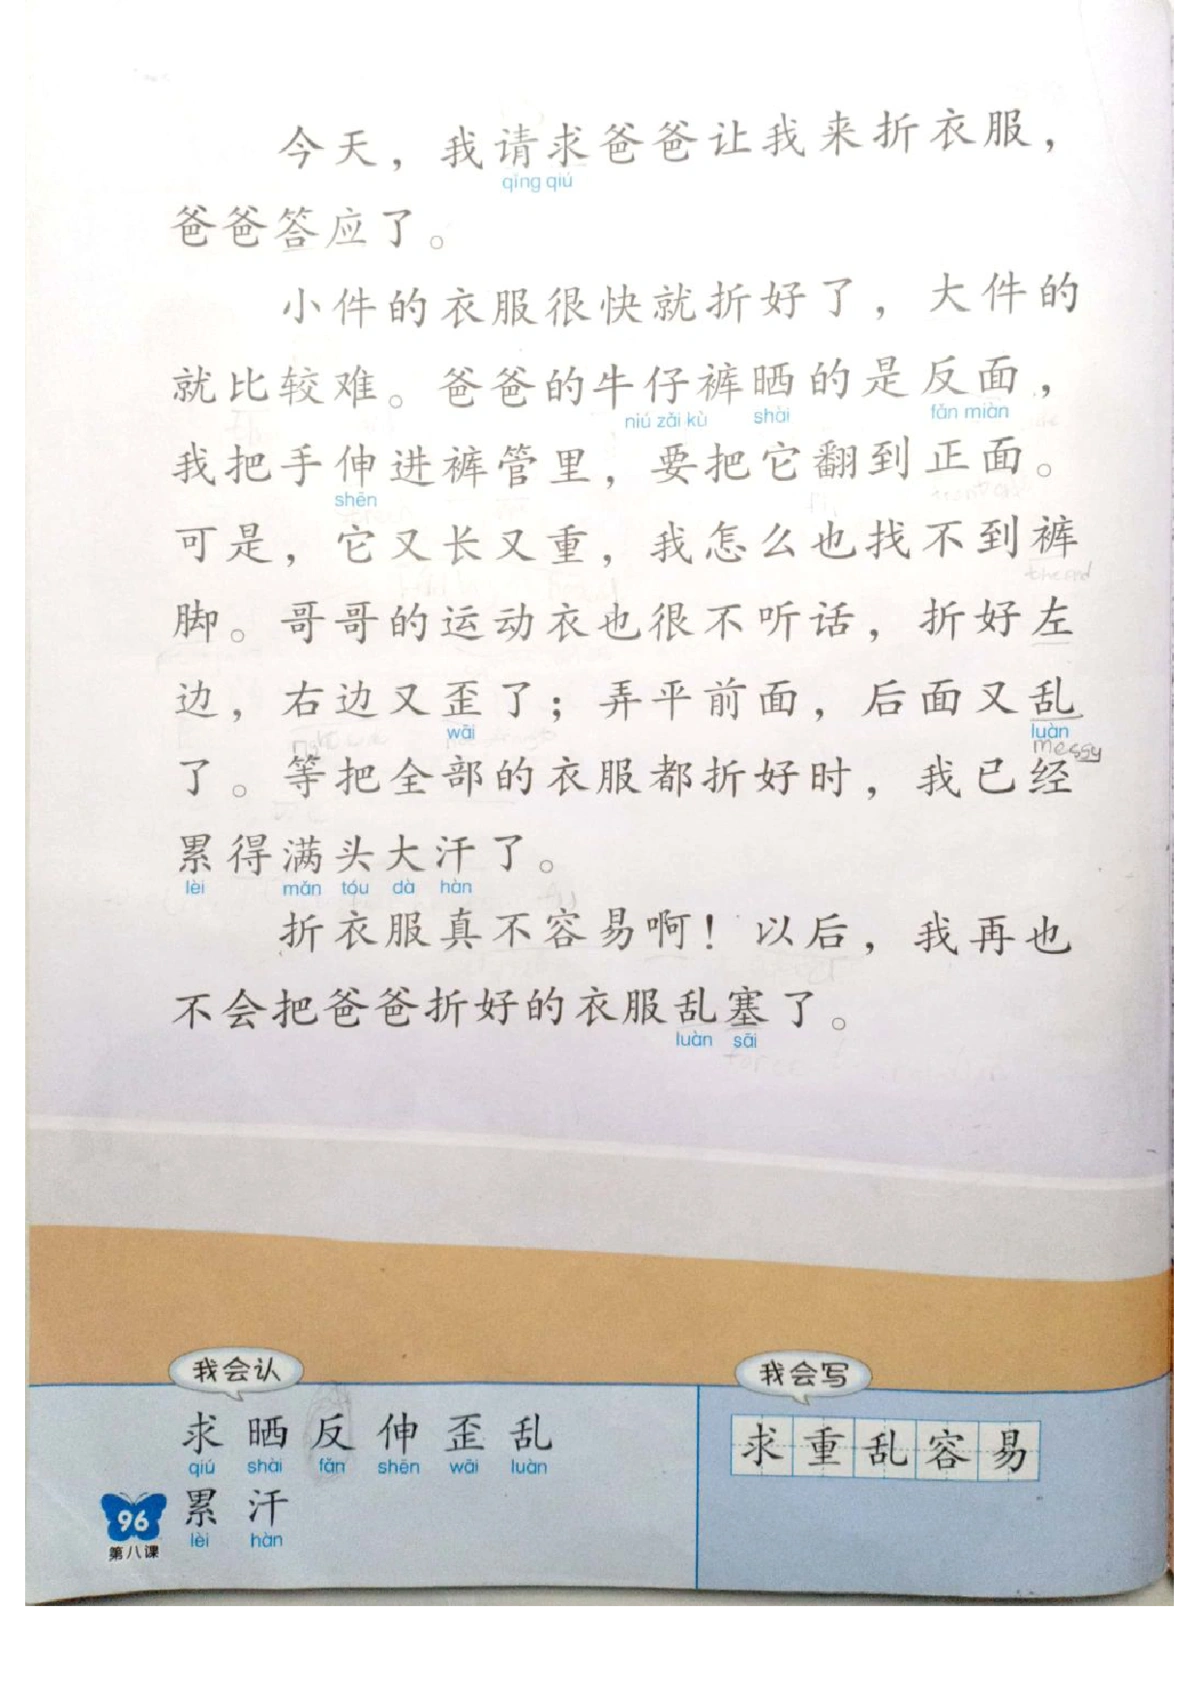 今天，我请求爸爸让我来折衣服，
qǐng qiú
爸爸答应了。
小件的衣服很快就折好了，大件的
就比较难。爸爸的牛仔裤晒的是反面，
niú zǎi kù shài fǎn miàn
我把手伸进裤管里，要把它翻到正面。
shēn
可是，它又长又重，我怎么也找不到裤
脚。哥哥的运动衣也很不听话，折好左
边，右边又歪了；弄平前面，后面又乱
wāi luàn
messy
了。等把全部的衣服都折好时，我已经
累得满头大汗了。
lèi mǎn tóu dà hàn
折衣服真不容易啊！以后，我再也
不会把爸爸折好的衣服乱塞了。
luàn sāi
我会认
求 晒 反 伸 歪 乱
qiú shài fǎn shēn wāi luàn
累 汗
lèi hàn
我会写
求 重 乱 容 易
96
第八课